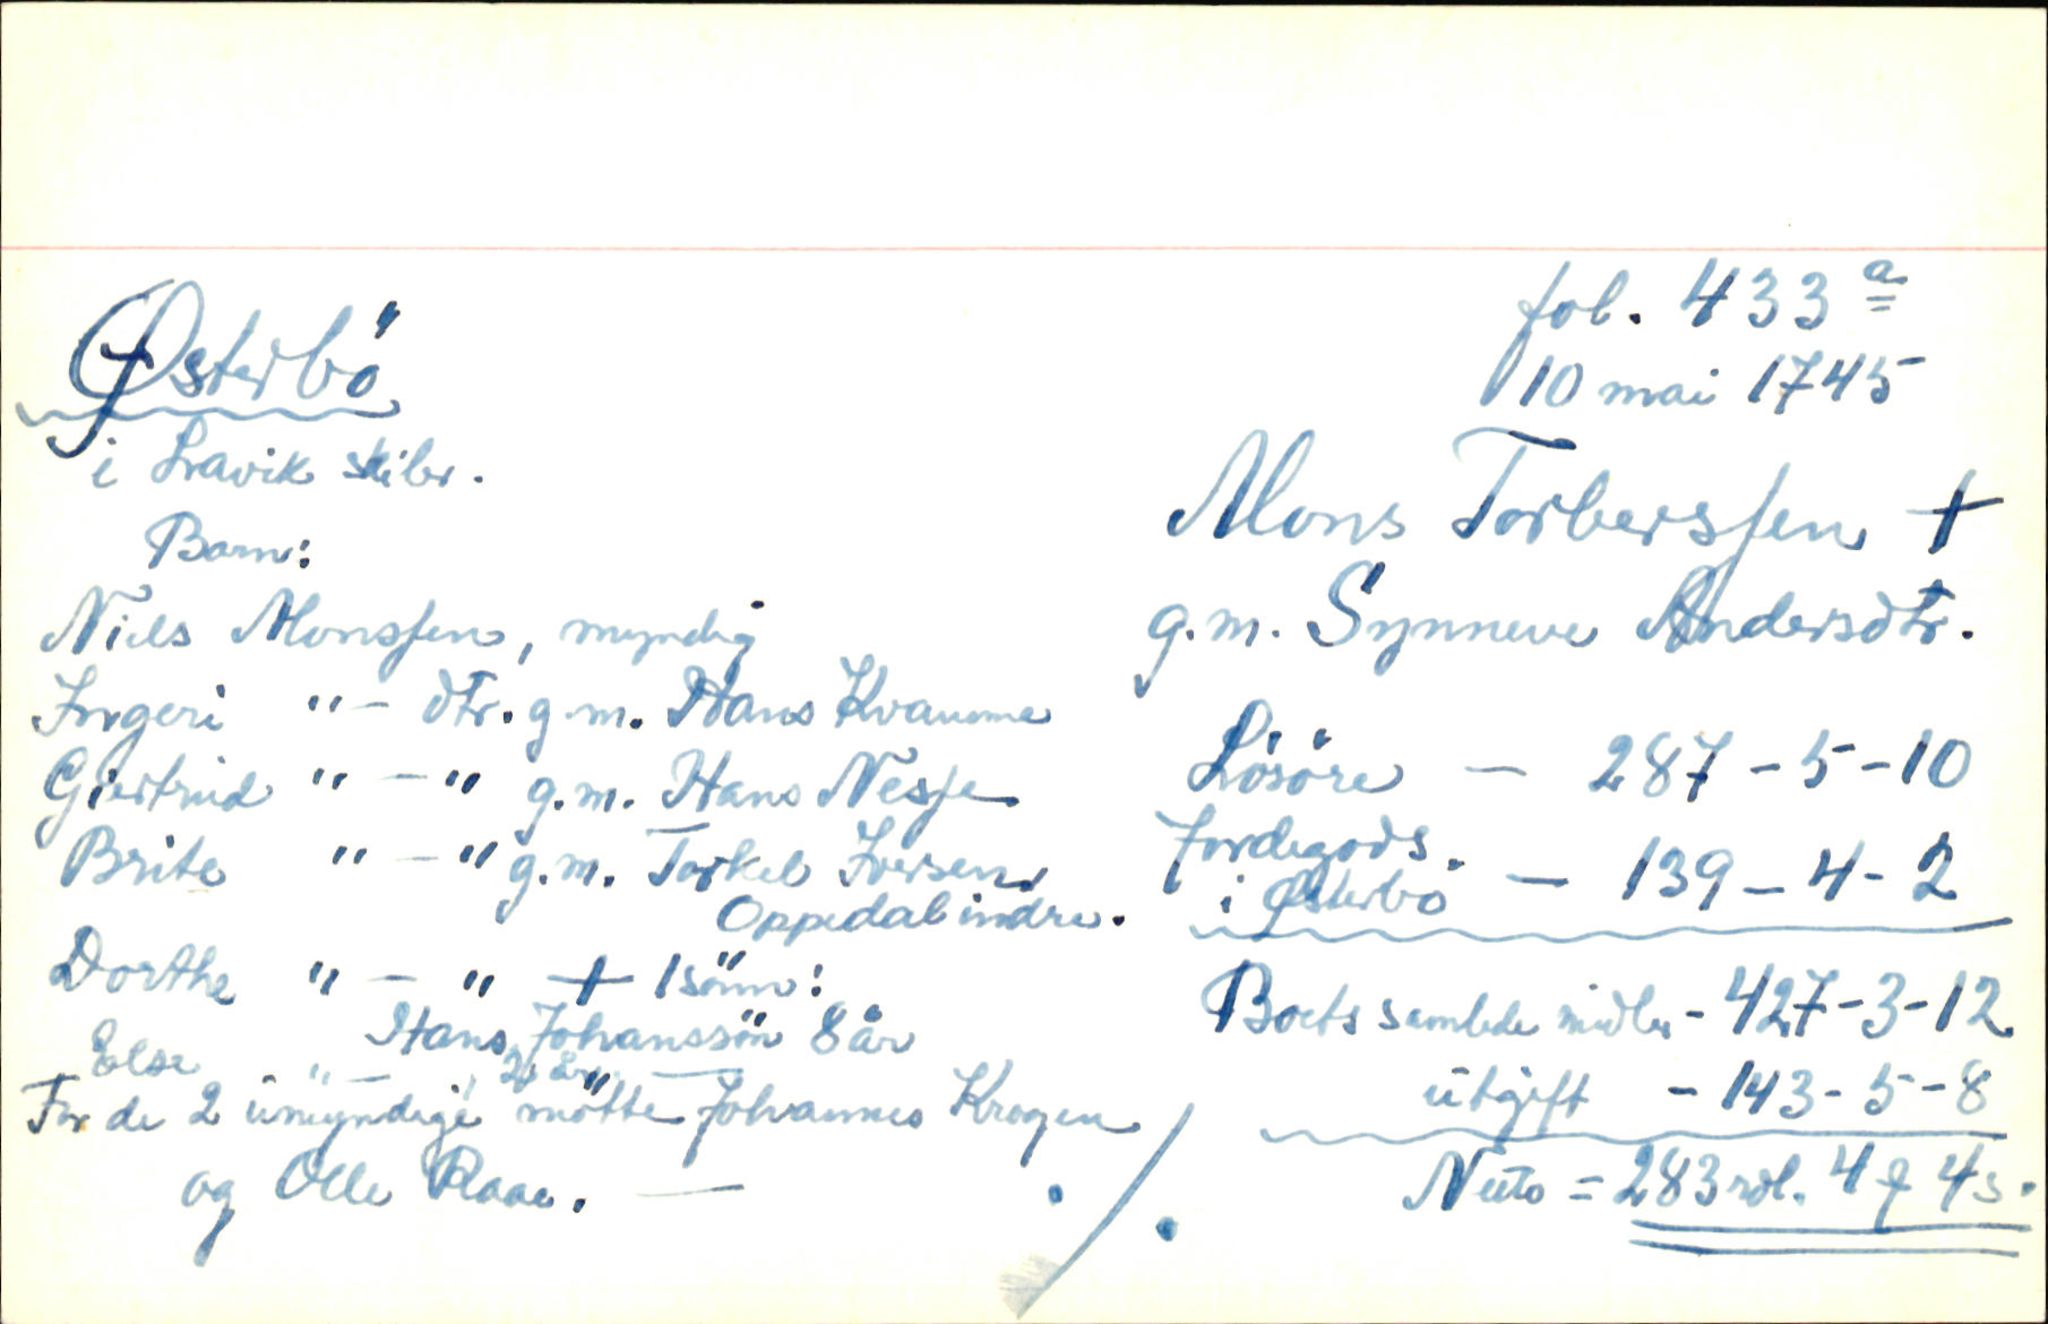 fol. 433 a
10 mai 1745
Østerbö
i Lavik skibr.
Mons Torberssen +
g.m. Synneve Andersdtr.
Barn:
Niels Monssen, myndig
Ingeri " — dtr. g.m. Hans Kvamme
Giertrud " — " g.m. Hans Nesje
Brite " — " g.m. Torkel Iversen,
Oppedal indre.
Dorthe " — " + 1 sönn:
Hans Johanssön 8 år
Else " — 21 år —
For de 2 umyndige mötte Johannes Krogen
og Olle Raae. —
Lösöre — 287 - 5 - 10
Jordegods.
i Østerbö — 139 - 4 - 2
Boets samlede midler - 427 - 3 - 12
utgift - 143 - 5 - 8
Netto = 283 rdl. 4 ₰ 4 s.
./.